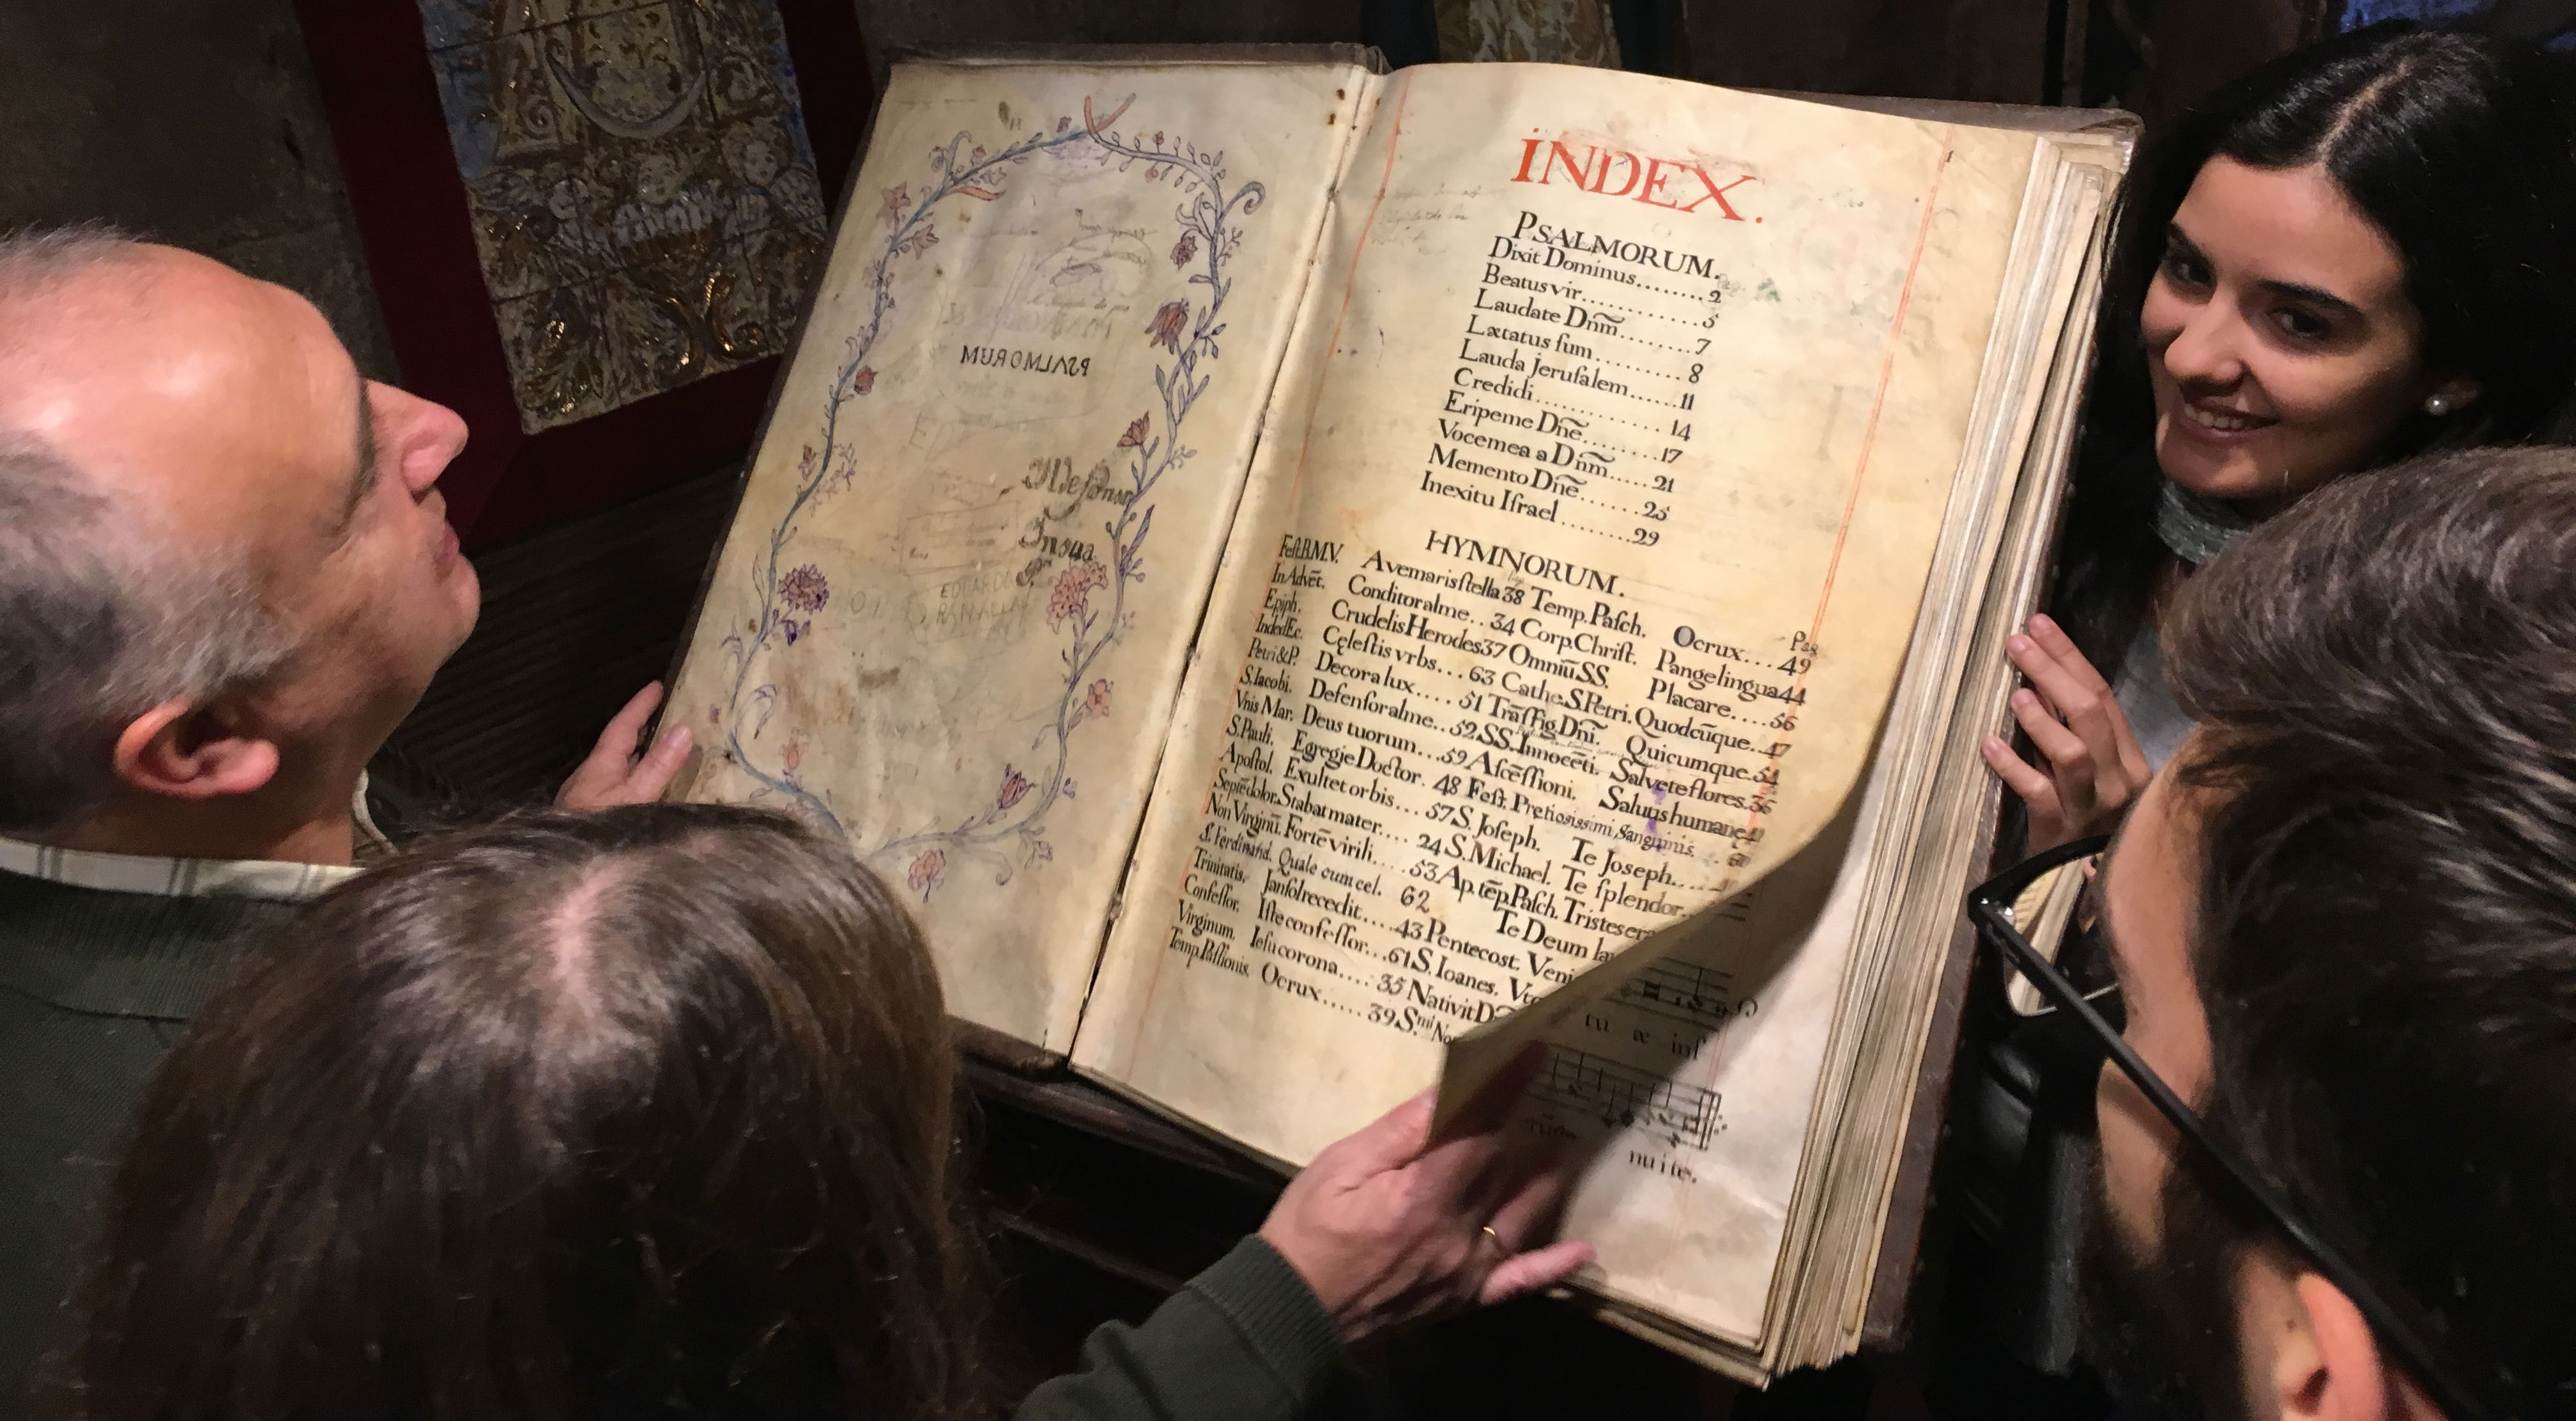 PSALMORUM
EDUARDO
RAMALLA
INDEX.
PSALMORUM.
Dixit Dominus........2
Beatus vir..........5
Laudate Dñm........7
Lætatus ſum........8
Lauda Jeruſalem......11
Credidi............14
Eripeme Dñe.......17
Vocemea a Dñm.....21
Memento Dñe......25
Inexitu Iſrael.......29
HYMNORUM.
Pag
Feſt.B.M.V. Avemarisſtella 38 Temp. Paſch. Ocrux...49
In Advēt. Conditoralme..34 Corp. Chriſt. Pangelingua 44
Epiph. Crudelis Herodes 37 Omniū SS. Placare....56
IndedEc. Cęleſtis vrbs...63 Cathe.S.Petri. Quodcūque..47
Petri&P. Decora lux....51 Trāſfig.Dñi. Quicumque.54
S.Iacobi. Defenſoralme..52 SS.Innocēti. Salvete flores.36
Vnis Mar. Deus tuorum...59 Aſcēſſioni. Salutis humane
S.Pauli. Egregie Doctor. 48 Feſt. Pretiosissimi Sanguinis.
Apoſtol. Exultet orbis...57 S. Joſeph. Te Joseph....
Septē dolor. Stabat mater....24 S. Michael. Te ſplendor..
Non Virginū. Fortē virili....53 Ap. tēp. Paſch. Tristes
S. Ferdinand. Quale cum cel. 62 Te Deum
Trinitatis. Janſolrecedit...43 Pentecost. Veni
Confeſſor. Iſte confeſſor...61 S. Ioanes.
Virginum. Ieſu corona....35 Nativit
Temp.Paſſionis. Ocrux....39 S.mi
tu æ inſ
nu i te.